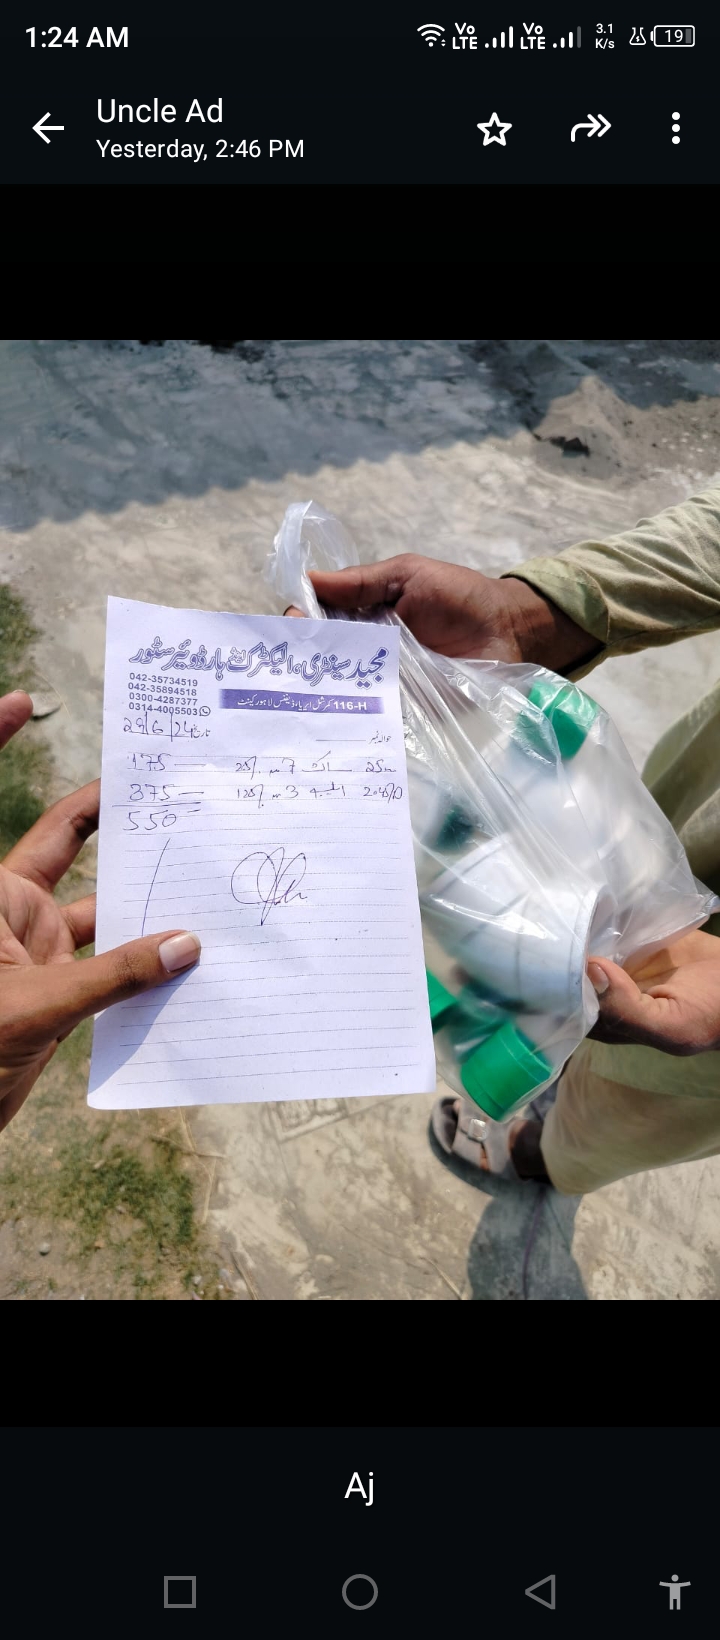 1:24 AM
Vo LTE Vo LTE 3.1 K/s 19
Uncle Ad
Yesterday, 2:46 PM
مجید سینٹری، الیکٹرک اینڈ ہارڈوئیر سٹور
042-35734519
042-35894518
0300-4287377
0314-4005503
116-H کمرشل ایریا، ڈیفنس لاہور کینٹ
حوالہ نمبر
تاریخ 29/6/24
25 7 25/. 175
3 125/. 375
550
Aj